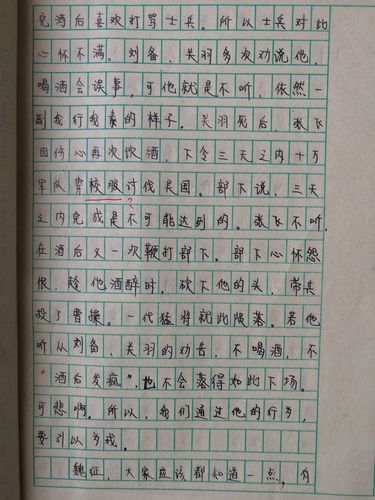 竟酒后喜欢打骂士兵。所以士兵对此
心怀不满。刘备、关羽多次劝说他,
喝酒会误事,可他就是不听,依然一
副我行我素的样子。关羽死后,张飞
因伤心再次饮酒,下令三天之内十万
军队穿校服讨伐吴国。部下说,三天
之内完成是不可能达到的。张飞不听,
在酒后又一次鞭打部下。部下心怀怨
恨,趁他酒醉时,砍下他的头,带兵
投了曹操。一代猛将就此陨落。若他
听从刘备、关羽的劝告,不喝酒,不
“酒后发疯”,也不会落得如此下场。
可悲啊。所以,我们通过他的行为,
要引以为戒。
魏征,大家应该都知道一点,有